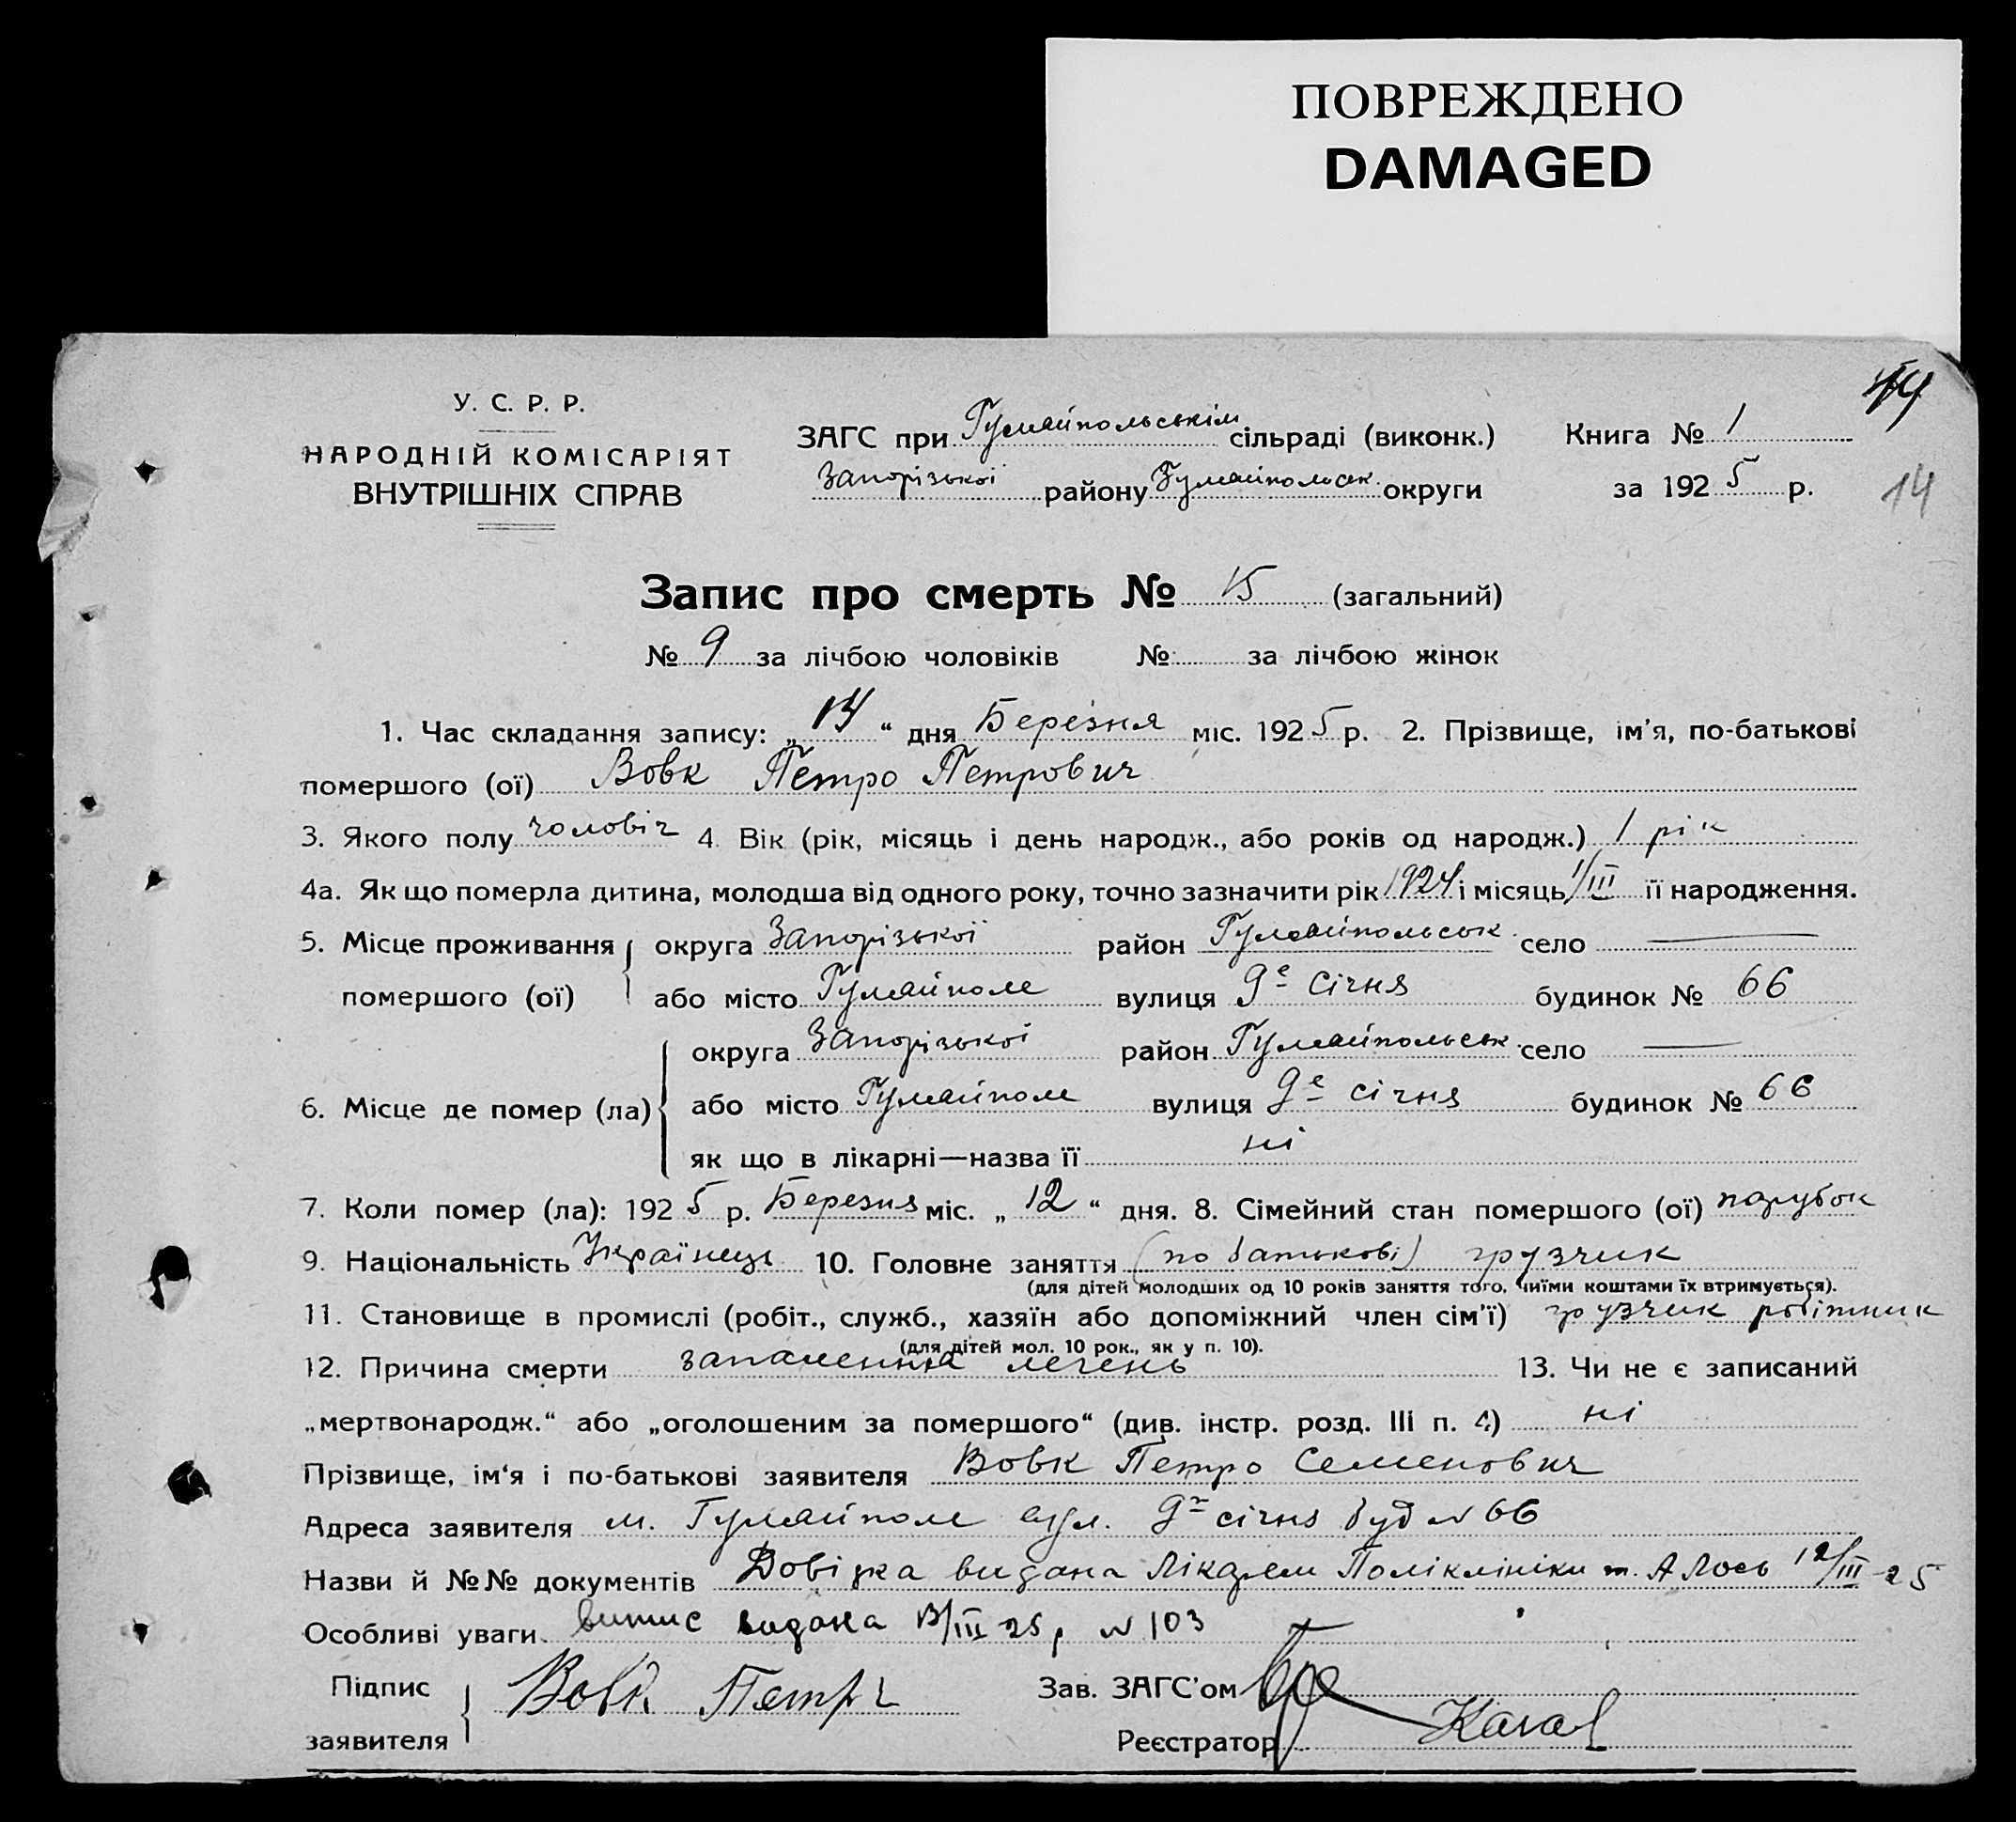 ПОВРЕЖДЕНО
DAMAGED
У. С. Р. Р.
НАРОДНІЙ КОМІСАРІЯТ
ВНУТРІШНІХ СПРАВ
ЗАГС при Гуляйпольськім сільраді (виконк.)
Запорізької району Гуляйпольськ. округи
Книга № 1
за 1925 р.
14
14
Запис про смерть № 15 (загальний)
№ 9 за лічбою чоловіків № за лічбою жінок
1. Час складання запису: „14“ дня Березня міс. 1925 р. 2. Прізвище, ім'я, по-батькові
помершого (ої) Вовк Петро Петрович
3. Якого полу чоловіч 4. Вік (рік, місяць і день народж., або років од народж.) 1 рік
4а. Як що померла дитина, молодша від одного року, точно зазначити рік 1924 і місяць 1/III її народження.
5. Місце проживання округа Запорізької район Гуляйпольськ. село —
помершого (ої) або місто Гуляйполе вулиця 9е Січня будинок № 66
округа Запорізької район Гуляйпольськ. село —
6. Місце де помер (ла) або місто Гуляйполе вулиця 9е січня будинок № 66
як що в лікарні—назва її ні
7. Коли помер (ла): 1925 р. Березня міс. „12“ дня. 8. Сімейний стан помершого (ої) парубок
9. Національність Українець 10. Головне заняття (по батькові) грузчик
(для дітей молодших од 10 років заняття того, чиїми коштами їх втримується).
11. Становище в промислі (робіт., служб., хазяїн або допоміжний член сім'ї) грузчик робітник
(для дітей мол. 10 рок., як у п. 10).
12. Причина смерти запалення легень 13. Чи не є записаний
„мертвонародж.“ або „оголошеним за помершого“ (див. інстр. розд. III п. 4) ні
Прізвище, ім'я і по-батькові заявителя Вовк Петро Семенович
Адреса заявителя м. Гуляйполе вул. 9го січня буд № 66
Назви й №№ документів Довідка видана Лікарем Поліклініки т. А Лось 12/III-25
Особливі уваги. витис видана 13/III 25р № 103
Підпис Вовк Петр Зав. ЗАГС'ом
заявителя Реєстратор